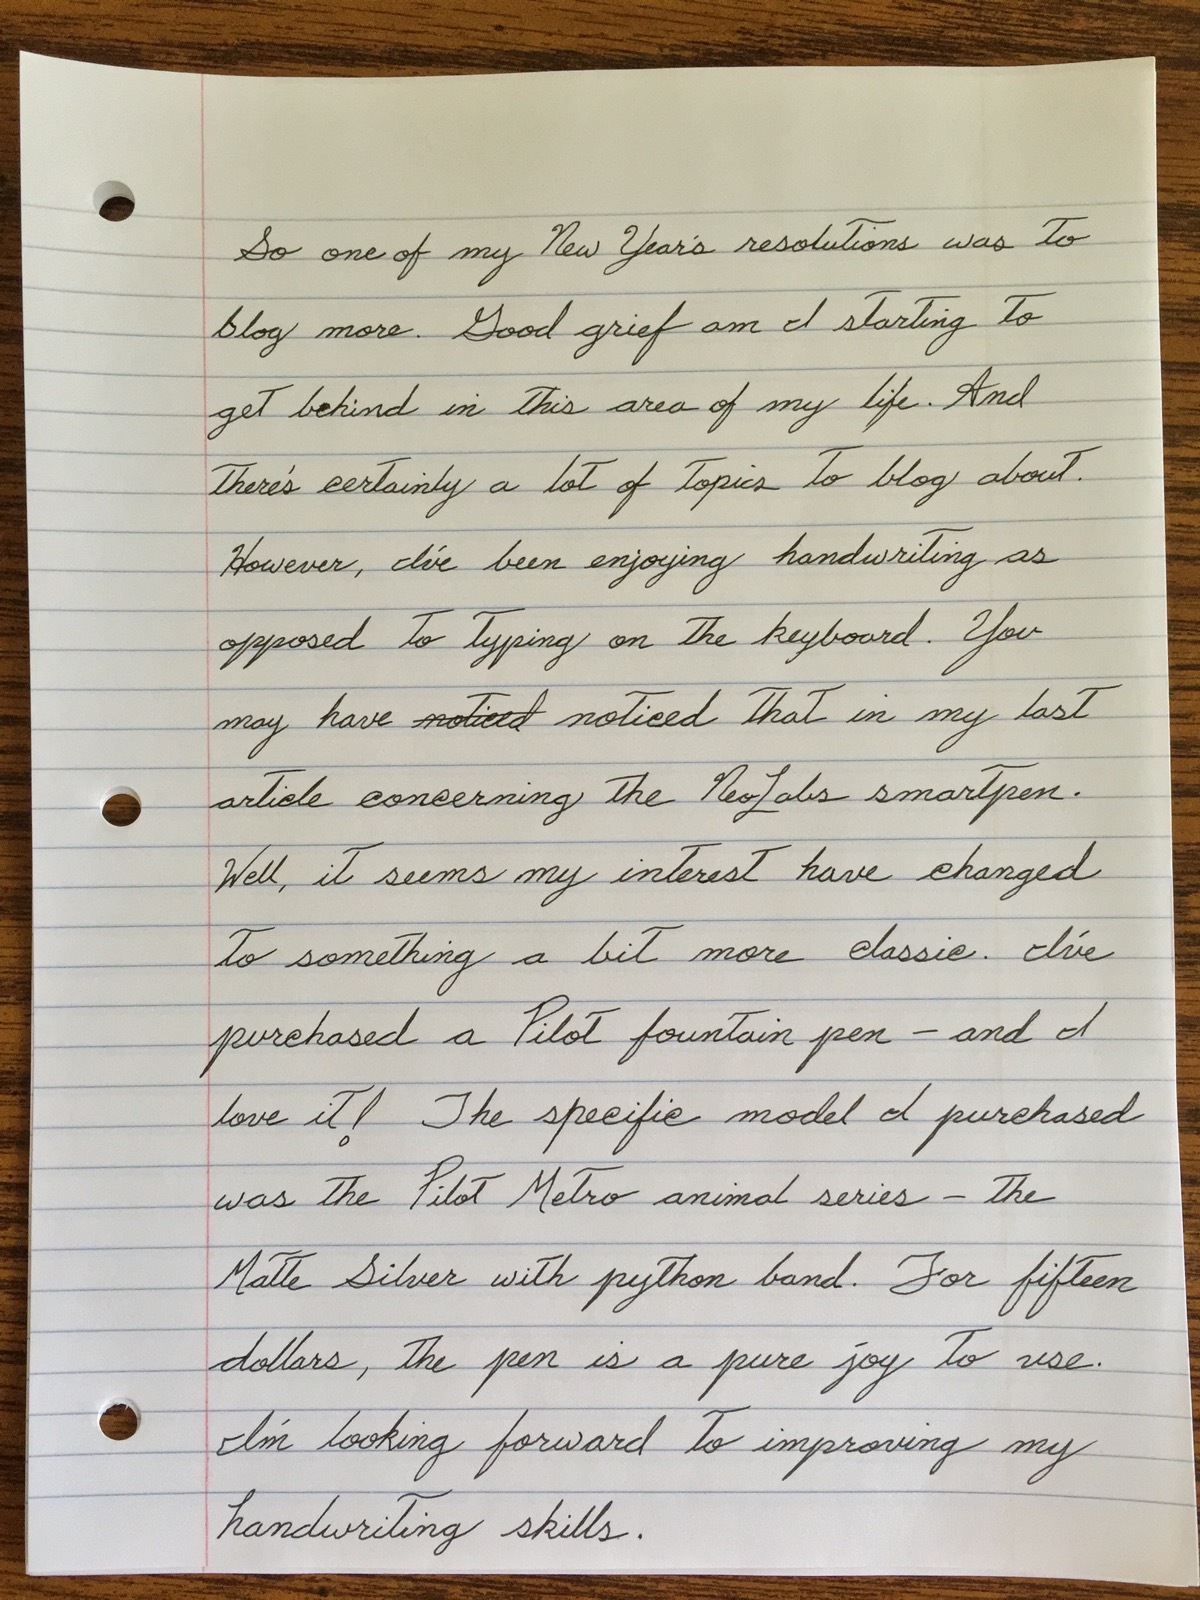 So one of my New Year's resolutions was to
blog more. Good grief am I starting to
get behind in this area of my life. And
there's certainly a lot of topics to blog about.
However, I've been enjoying handwriting as
opposed to typing on the keyboard. You
may have noticed noticed that in my last
article concerning the NeoLabs smartpen.
Well, it seems my interest have changed
to something a bit more classic. I've
purchased a Pilot fountain pen – and I
love it! The specific model I purchased
was the Pilot Metro animal series – the
Matte Silver with python band. For fifteen
dollars, the pen is a pure joy to use.
I'm looking forward to improving my
handwriting skills.